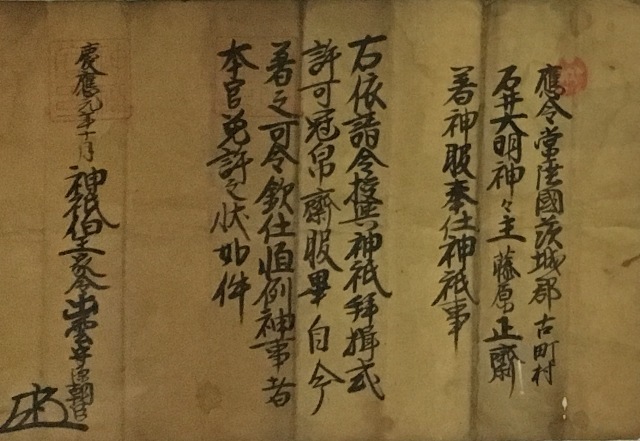 應令常陸國茨城郡 古町村
石井大明神々主 藤原正齋
著神服奉仕神祇事
右依請令授與神祇拜揖式
許可冠帛齋服畢自今
著之可令欽仕恒例神事者
本官免許之状如件
慶應元年十月 神祇伯王家令出雲守源朝臣